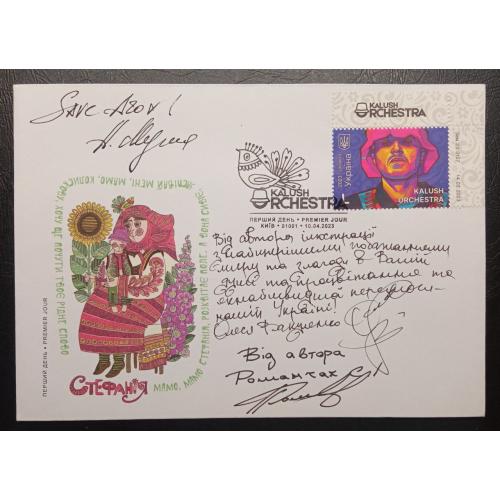 SAVE AZOV!
KALUSH
ORCHESTRA
Україна
2023
KALUSH
ORCHESTRA
KALUSH
ORCHESTRA
ПЕРШИЙ ДЕНЬ • PREMIER JOUR
КИЇВ • 01001 • 10.04.2023
Від автора ілюстрації
з найщирішими побажаннями
миру та злагоди в Вашій
та процвітання та
нашій Україні!
Олеся
Від автора
Романчак
ЗАСПІВАЙ МЕНІ, МАМО, КОЛИСКОВУ, ХОЧУ ЩЕ ПОЧУТИ ТВОЄ РІДНЕ СЛОВО
МАМО, МАМО СТЕФАНІЯ, РОЗКВІТАЄ ПОЛЕ, А ВОНА СИВІЄ
СТЕФАНІЯ
ПЕРШИЙ ДЕНЬ • PREMIER JOUR